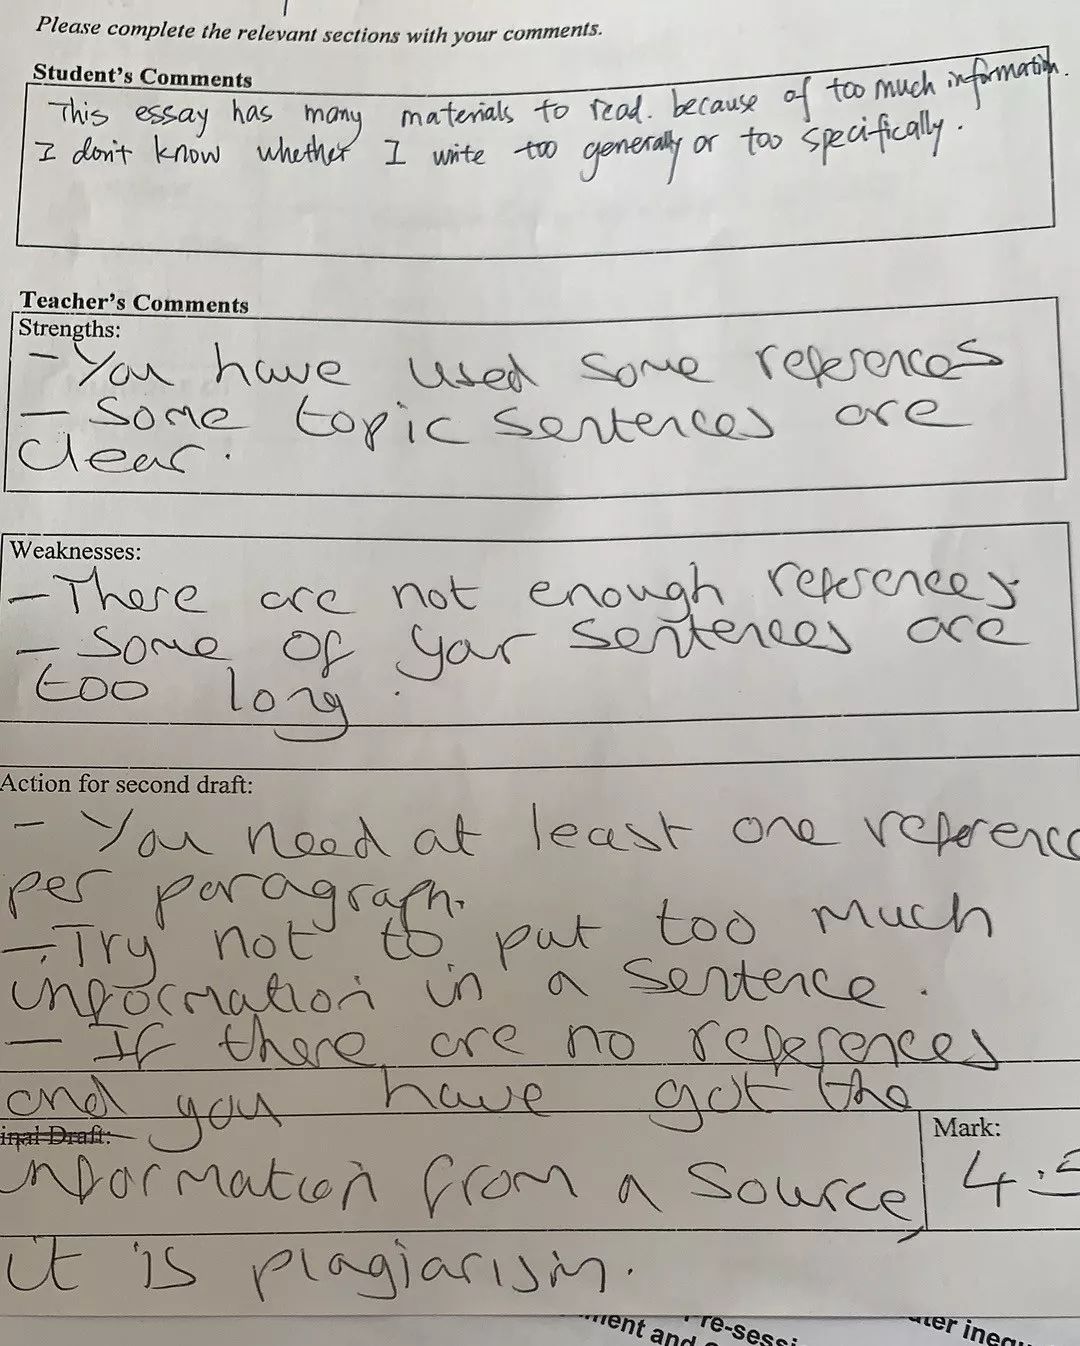 Please complete the relevant sections with your comments.
Student's Comments
This essay has many materials to read. because of too much information.
I don't know whether I write too generally or too specifically.
Teacher's Comments
Strengths:
- You have used some references
- Some topic sentences are
clear.
Weaknesses:
- There are not enough references
- Some of your sentences are
too long.
Action for second draft:
- You need at least one reference
per paragraph.
- Try not to put too much
information in a sentence.
- If there are no references
and you have got the
inal Draft:
Mark:
information from a source,
4.5
it is plagiarism.
ment and
re-sessi
ater inequ